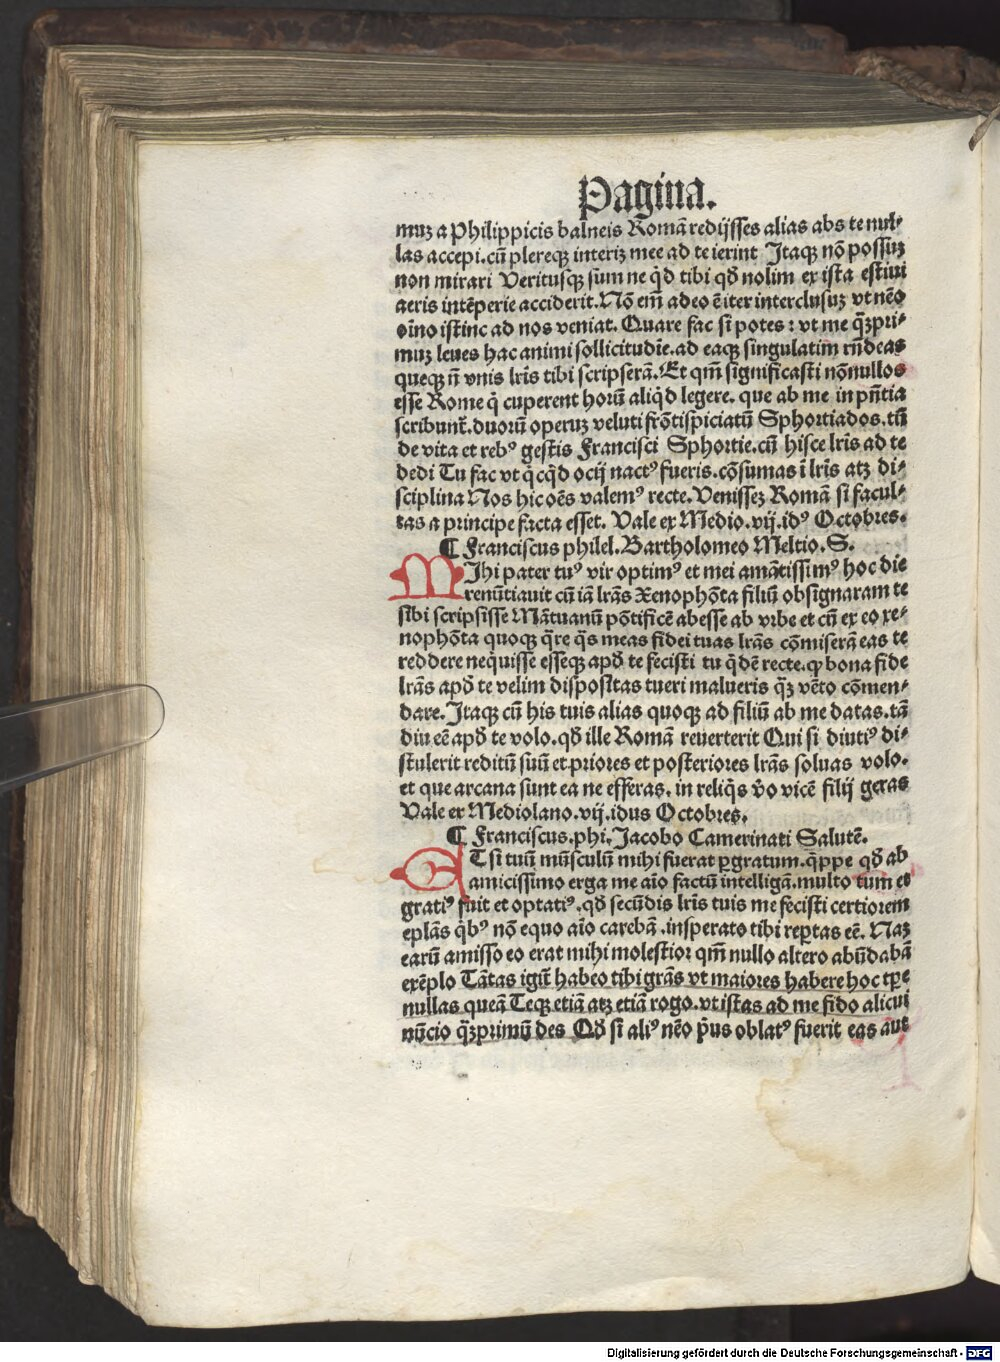 Pagina.
muꝫ a Philippicis balneis Romā redijsses alias abs te nul⸗
las accepi.cū plereqꝫ interiꝫ mee ad te ierint Itaqꝫ nō possuꝫ
non mirari Veritusqꝫ sum ne qͥd tibi qð nolim ex ista estiui
aeris intēperie acciderit.Nō em̄ adeo ē iter interclusuꝫ vt nēo
oīno istinc ad nos veniat. Quare fac si potes : vt me qͣꝫpri⸗
muꝫ leues hac animi sollicitudīe.ad eaqꝫ singulatim rn̄deas
queqꝫ n̄ vnis lr̄is tibi scripserā. Et qm̄ significasti nōnullos
esse Rome qͥ cuperent horū aliqͥd legere. que ab me in pn̄tia
scribunt̄.duorū operuꝫ veluti frōtispiciatū Sphortiados.tū
de vita et rebꝰ gestis Francisci Sphortie.cū hisce lr̄is ad te
dedi Tu fac vt qͥcqͥd ocij nactꝰ fueris.cōsumas ī lr̄is atqꝫ di⸗
sciplina Nos hic oēs valemꝰ recte. Venisseꝫ Romā si facul⸗
tas a principe facta esset. Vale ex Medio.vij.idꝰ Octobres.
¶ Franciscus philel. Bartholomeo Meltio. S.
MIhi pater tuꝰ vir optimꝰ et mei amātissimꝰ hoc die
renūtiauit cū iā lr̄as Xenophōta filiū obsignaram te
sibi scripsisse Mātuanū pōtificē abesse ab vrbe et cū ex eo xe⸗
nophōta quoqꝫ qͣre qͣs meas fidei tuas lr̄as cōmiserā eas te
reddere nequisse esseqꝫ apð te fecisti tu qͥdē recte.qꝫ bona fide
lr̄as apð te velim dispositas tueri malueris qͣꝫ vēto cōmen⸗
dare. Itaqꝫ cū his tuis alias quoqꝫ ad filiū ab me datas.tā
diu eē apð te volo.qð ille Romā reuerterit Qui si diutiꝰ di⸗
stulerit reditū suū et priores et posteriores lr̄as soluas volo.
et que arcana sunt ea ne efferas. in reliqͥs v̄o vicē filij geras
Vale ex Mediolano.vij.idus Octobres.
¶ Franciscus.phi. Jacobo Camerinati Salutē.
ET si tuū mūsculū mihi fuerat ꝑgratum.qͥppe qð ab
amicissimo erga me aīo factū intelligā.multo tum es
gratiꝰ fuit et optatiꝰ.qð secūdis lr̄is tuis me fecisti certiorem
eplās qͥbꝰ nō equo aīo carebā.insperato tibi reꝑtas eē. Naꝫ
earū amisso eo erat mihi molestior qm̄ nullo altero abūdabā
exēplo Tātas igit̄ habeo tibi gr̄as vt maiores habere hoc tꝑe
nullas queā Teqꝫ etiā atqꝫ etiā rogo.vt istas ad me fido alicui
nūcio qͣꝫprimū des Qð si aliꝰ nēo pͥus oblatꝰ fuerit eas aut
Digitalisierung gefördert durch die Deutsche Forschungsgemeinschaft - DFG